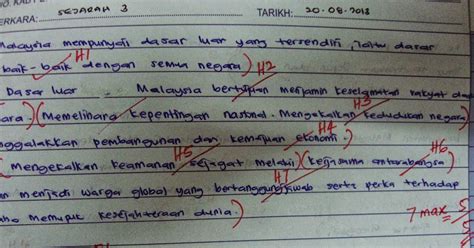 PERKARA: SEJARAH 3 TARIKH: 20.08.2018
Malaysia mempunyai dasar luar yang tersendiri, iaitu dasar
baik-baik dengan semua negara) H1
Dasar luar Malaysia bertujuan menjamin keselamatan rakyat da H2
ara) (Memelihara kepentingan nasional. Mengekalkan kedudukan negara) H3
nggalakkan pembangunan dan kemajuan ekonomi.) H4
(Mengekalkan keamanan sejagat melalui) (kerjasama antarabangsa) H5 H6
an menjadi warga global yang bertanggungjawab serta peka terhadap H7
aha memupuk kesejahteraan dunia.) 7 max 5
5